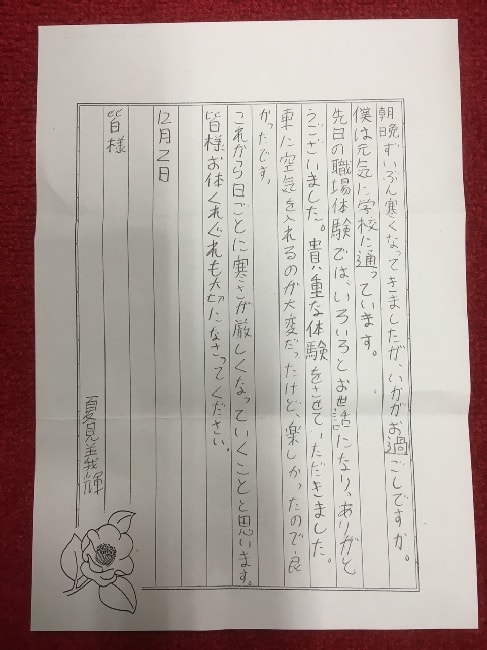 朝晩ずいぶん寒くなってきましたが、いかがお過ごしですか。
僕は元気に学校に通っています。
先日の職場体験では、いろいろとお世話になり、ありがと
うございました。貴重な体験をさせていただきました。
車に空気を入れるのが大変だったけど、楽しかったので良
かったです。
これから日ごとに寒さが厳しくなっていくことと思います。
皆様お体くれぐれも大切になさってください。
12月2日
夏見義輝
皆様